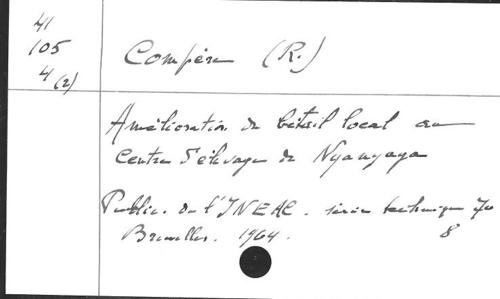 41
105
4 (2)
Compère (R.)
Amélioration du bétail local au
Centre d'élevage de Nyamyaga
Public. de l'INEAC. série technique 70
Bruxelles. 1964. 8